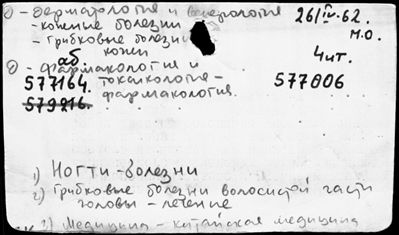 1) - Дерматология и венерология 26/IV-62.
- кожные болезни м.о.
- грибковые болезни кожи
аб. Чит.
2) - фармакология и
577164. токсикология - 577006
579216. фармакология.
1) Ногти - болезни
2) Грибковые болезни волосистой части
головы - лечение
2) Медицина - китайская медицина